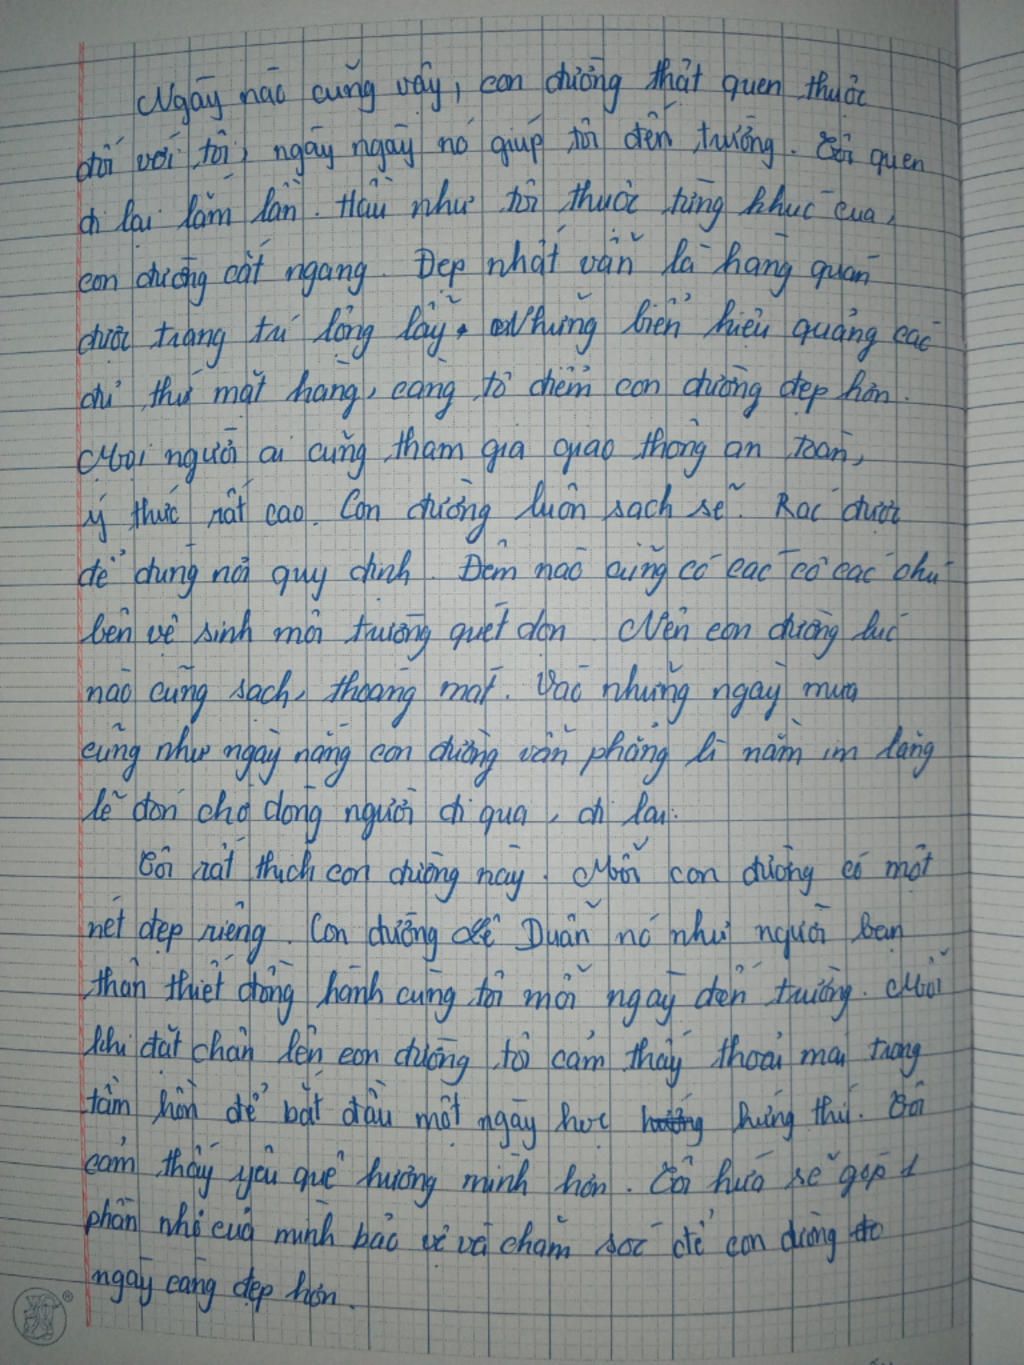 Ngày nào cũng vậy, con đường thật quen thuộc
đối với tôi, ngày ngày nó giúp tôi đến trường. Tôi quen
đi lại lắm lần. Hầu như tôi thuộc từng khúc cua,
con đường cắt ngang. Đẹp nhất vẫn là hàng quán
được trang trí lộng lẫy. Những biển hiệu quảng cáo
đủ thứ mặt hàng, càng tô điểm con đường đẹp hơn.
Mọi người ai cũng tham gia giao thông an toàn,
ý thức rất cao. Con đường luôn sạch sẽ. Rác được
để đúng nơi quy định. Đêm nào cũng có các cô các chú
bên vệ sinh môi trường quét dọn. Nên con đường lúc
nào cũng sạch, thoáng mát. Vào những ngày mưa
cũng như ngày nắng con đường vẫn phẳng lì nằm im lặng
lẽ đón chờ dòng người đi qua, đi lại.
Tôi rất thích con đường này. Mỗi con đường có một
nét đẹp riêng. Con đường Lê Duẩn nó như người bạn
thân thiết đồng hành cùng tôi mỗi ngày đến trường. Mỗi
khi đặt chân lên con đường tôi cảm thấy thoải mái trong
tâm hồn để bắt đầu một ngày học hứng thú. Tôi
cảm thấy yêu quê hương mình hơn. Tôi hứa sẽ góp 1
phần nhỏ của mình bảo vệ và chăm sóc để con đường đó
ngày càng đẹp hơn.